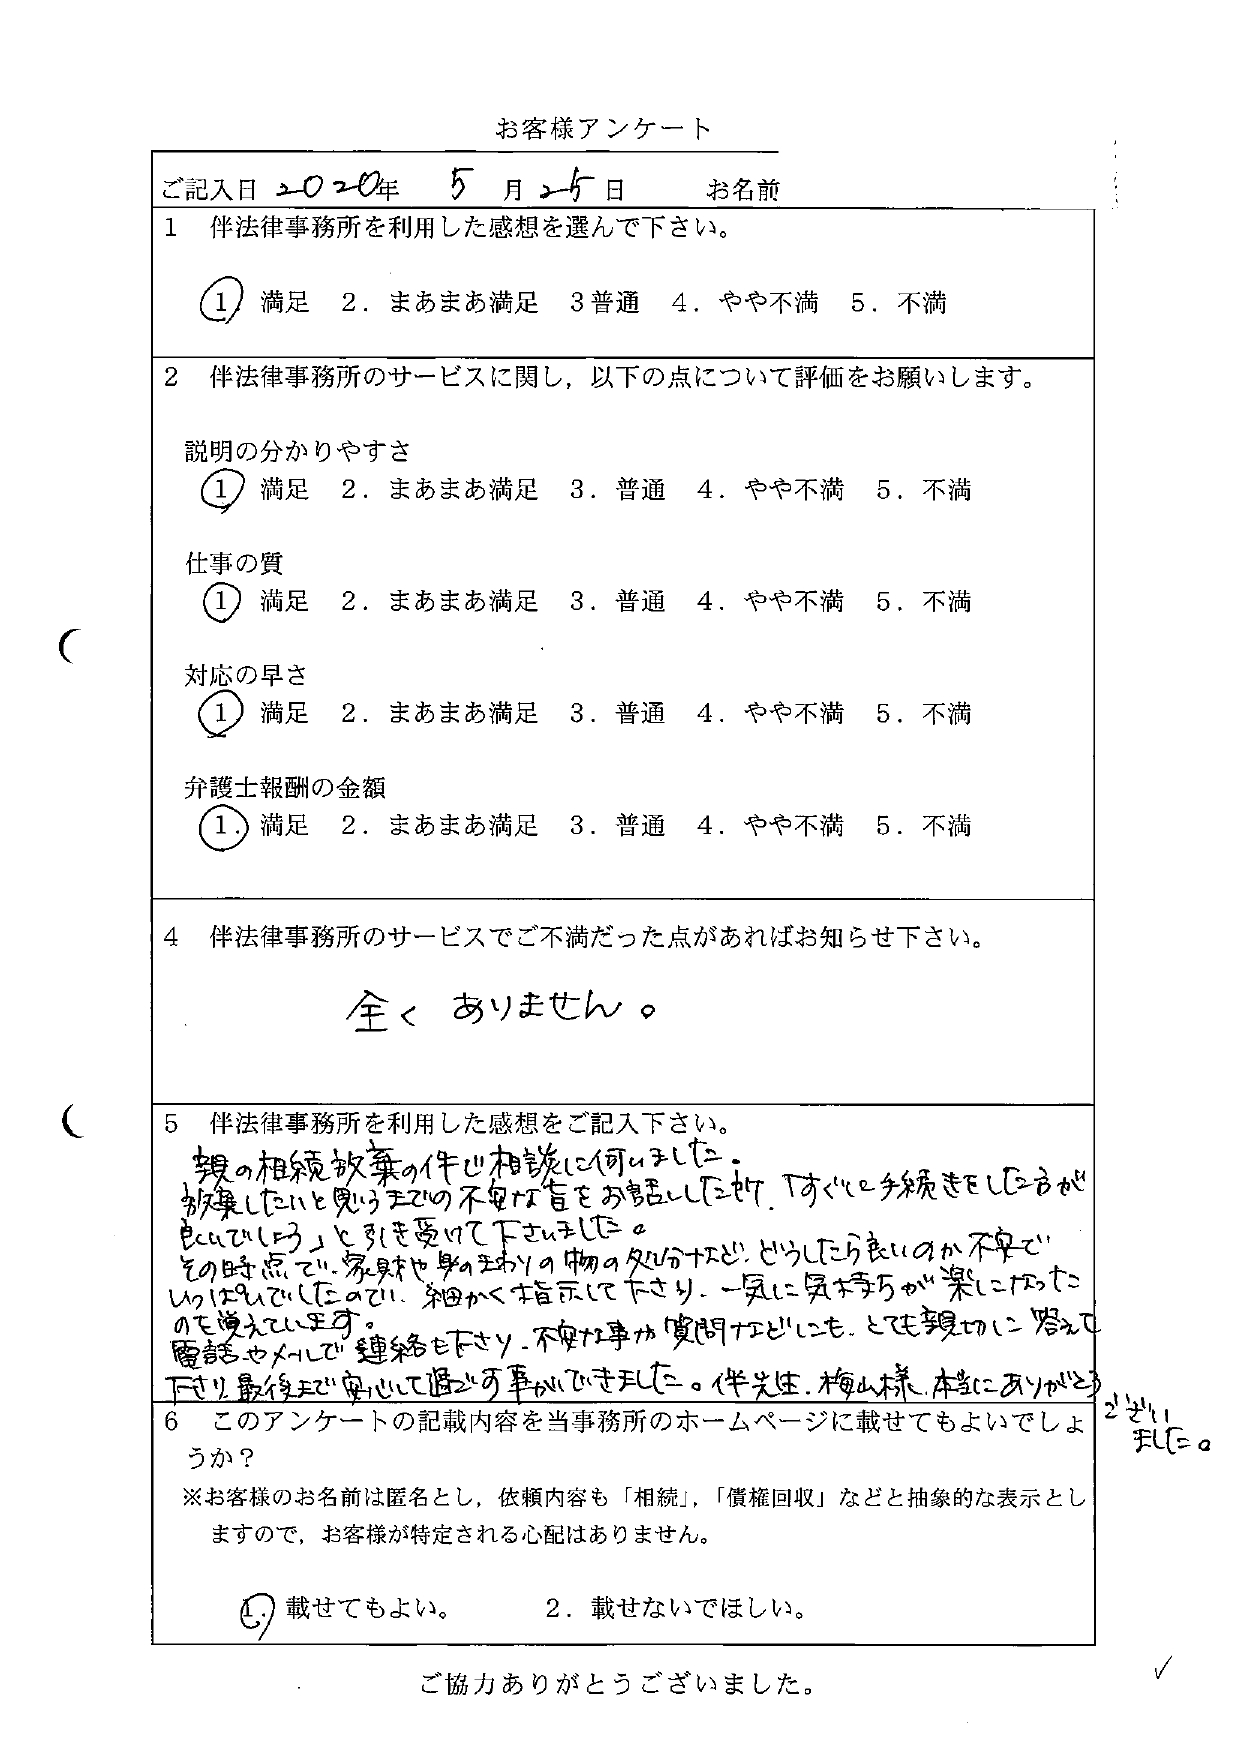 お客様アンケート
ご記入日 2020年 5月25日 お名前
1 伴法律事務所を利用した感想を選んで下さい。
1 満足 2. まあまあ満足 3普通 4. やや不満 5. 不満
2 伴法律事務所のサービスに関し,以下の点について評価をお願いします。
説明の分かりやすさ
1 満足 2. まあまあ満足 3. 普通 4. やや不満 5. 不満
仕事の質
1 満足 2. まあまあ満足 3. 普通 4. やや不満 5. 不満
対応の早さ
1 満足 2. まあまあ満足 3. 普通 4. やや不満 5. 不満
弁護士報酬の金額
1. 満足 2. まあまあ満足 3. 普通 4. やや不満 5. 不満
4 伴法律事務所のサービスでご不満だった点があればお知らせ下さい。
全く ありません。
5 伴法律事務所を利用した感想をご記入下さい。
親の相続放棄の件で相談に伺いました。
放棄したいと思うまでの不安な旨をお話しした所、「すぐに手続きをした方が
良いでしょう」と引き受けて下さいました。
その時点で、家財や身のまわりの物の処分など、どうしたら良いのか不安で
いっぱいでしたので、細かく指示して下さり、一気に気持ちが楽になった
のを覚えています。
電話やメールで連絡も下さり、不安な事や質問などにも、とても親切に答えて
下さり最後まで安心して過ごす事ができました。伴先生、梅山様、本当にありがとう
ござい
ました。
6 このアンケートの記載内容を当事務所のホームページに載せてもよいでしょ
うか?
※お客様のお名前は匿名とし,依頼内容も「相続」,「債権回収」などと抽象的な表示とし
ますので,お客様が特定される心配はありません。
1. 載せてもよい。 2. 載せないでほしい。
ご協力ありがとうございました。